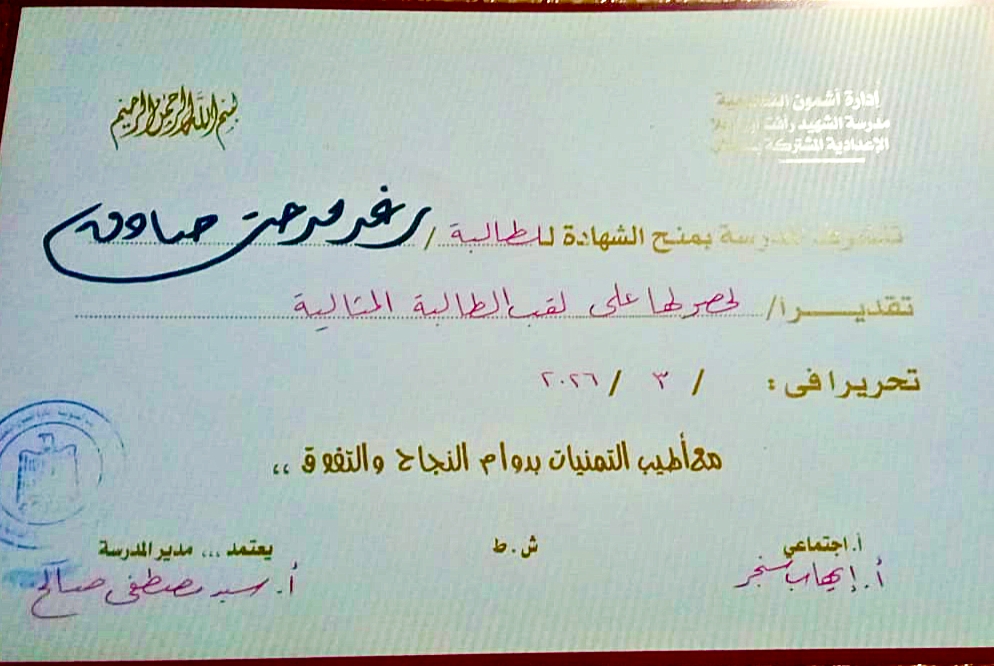 بسم الله الرحمن الرحيم
إدارة أشمون التعليمية
مدرسة الشهيد رأفت
الإعدادية المشتركة
تتشرف المدرسة بمنح الشهادة للطالبة / رغد مدحت صادق
تقديرا / لحصولها على لقب الطالبة المثالية
تحريرا فى : / ٣ / ٢٠٢٦
مع أطيب التمنيات بدوام النجاح والتفوق ،،
أ. اجتماعي
ش . ط
يعتمد ... مدير المدرسة
أ. إيهاب سنجر
أ. سيد مصطفى صالح